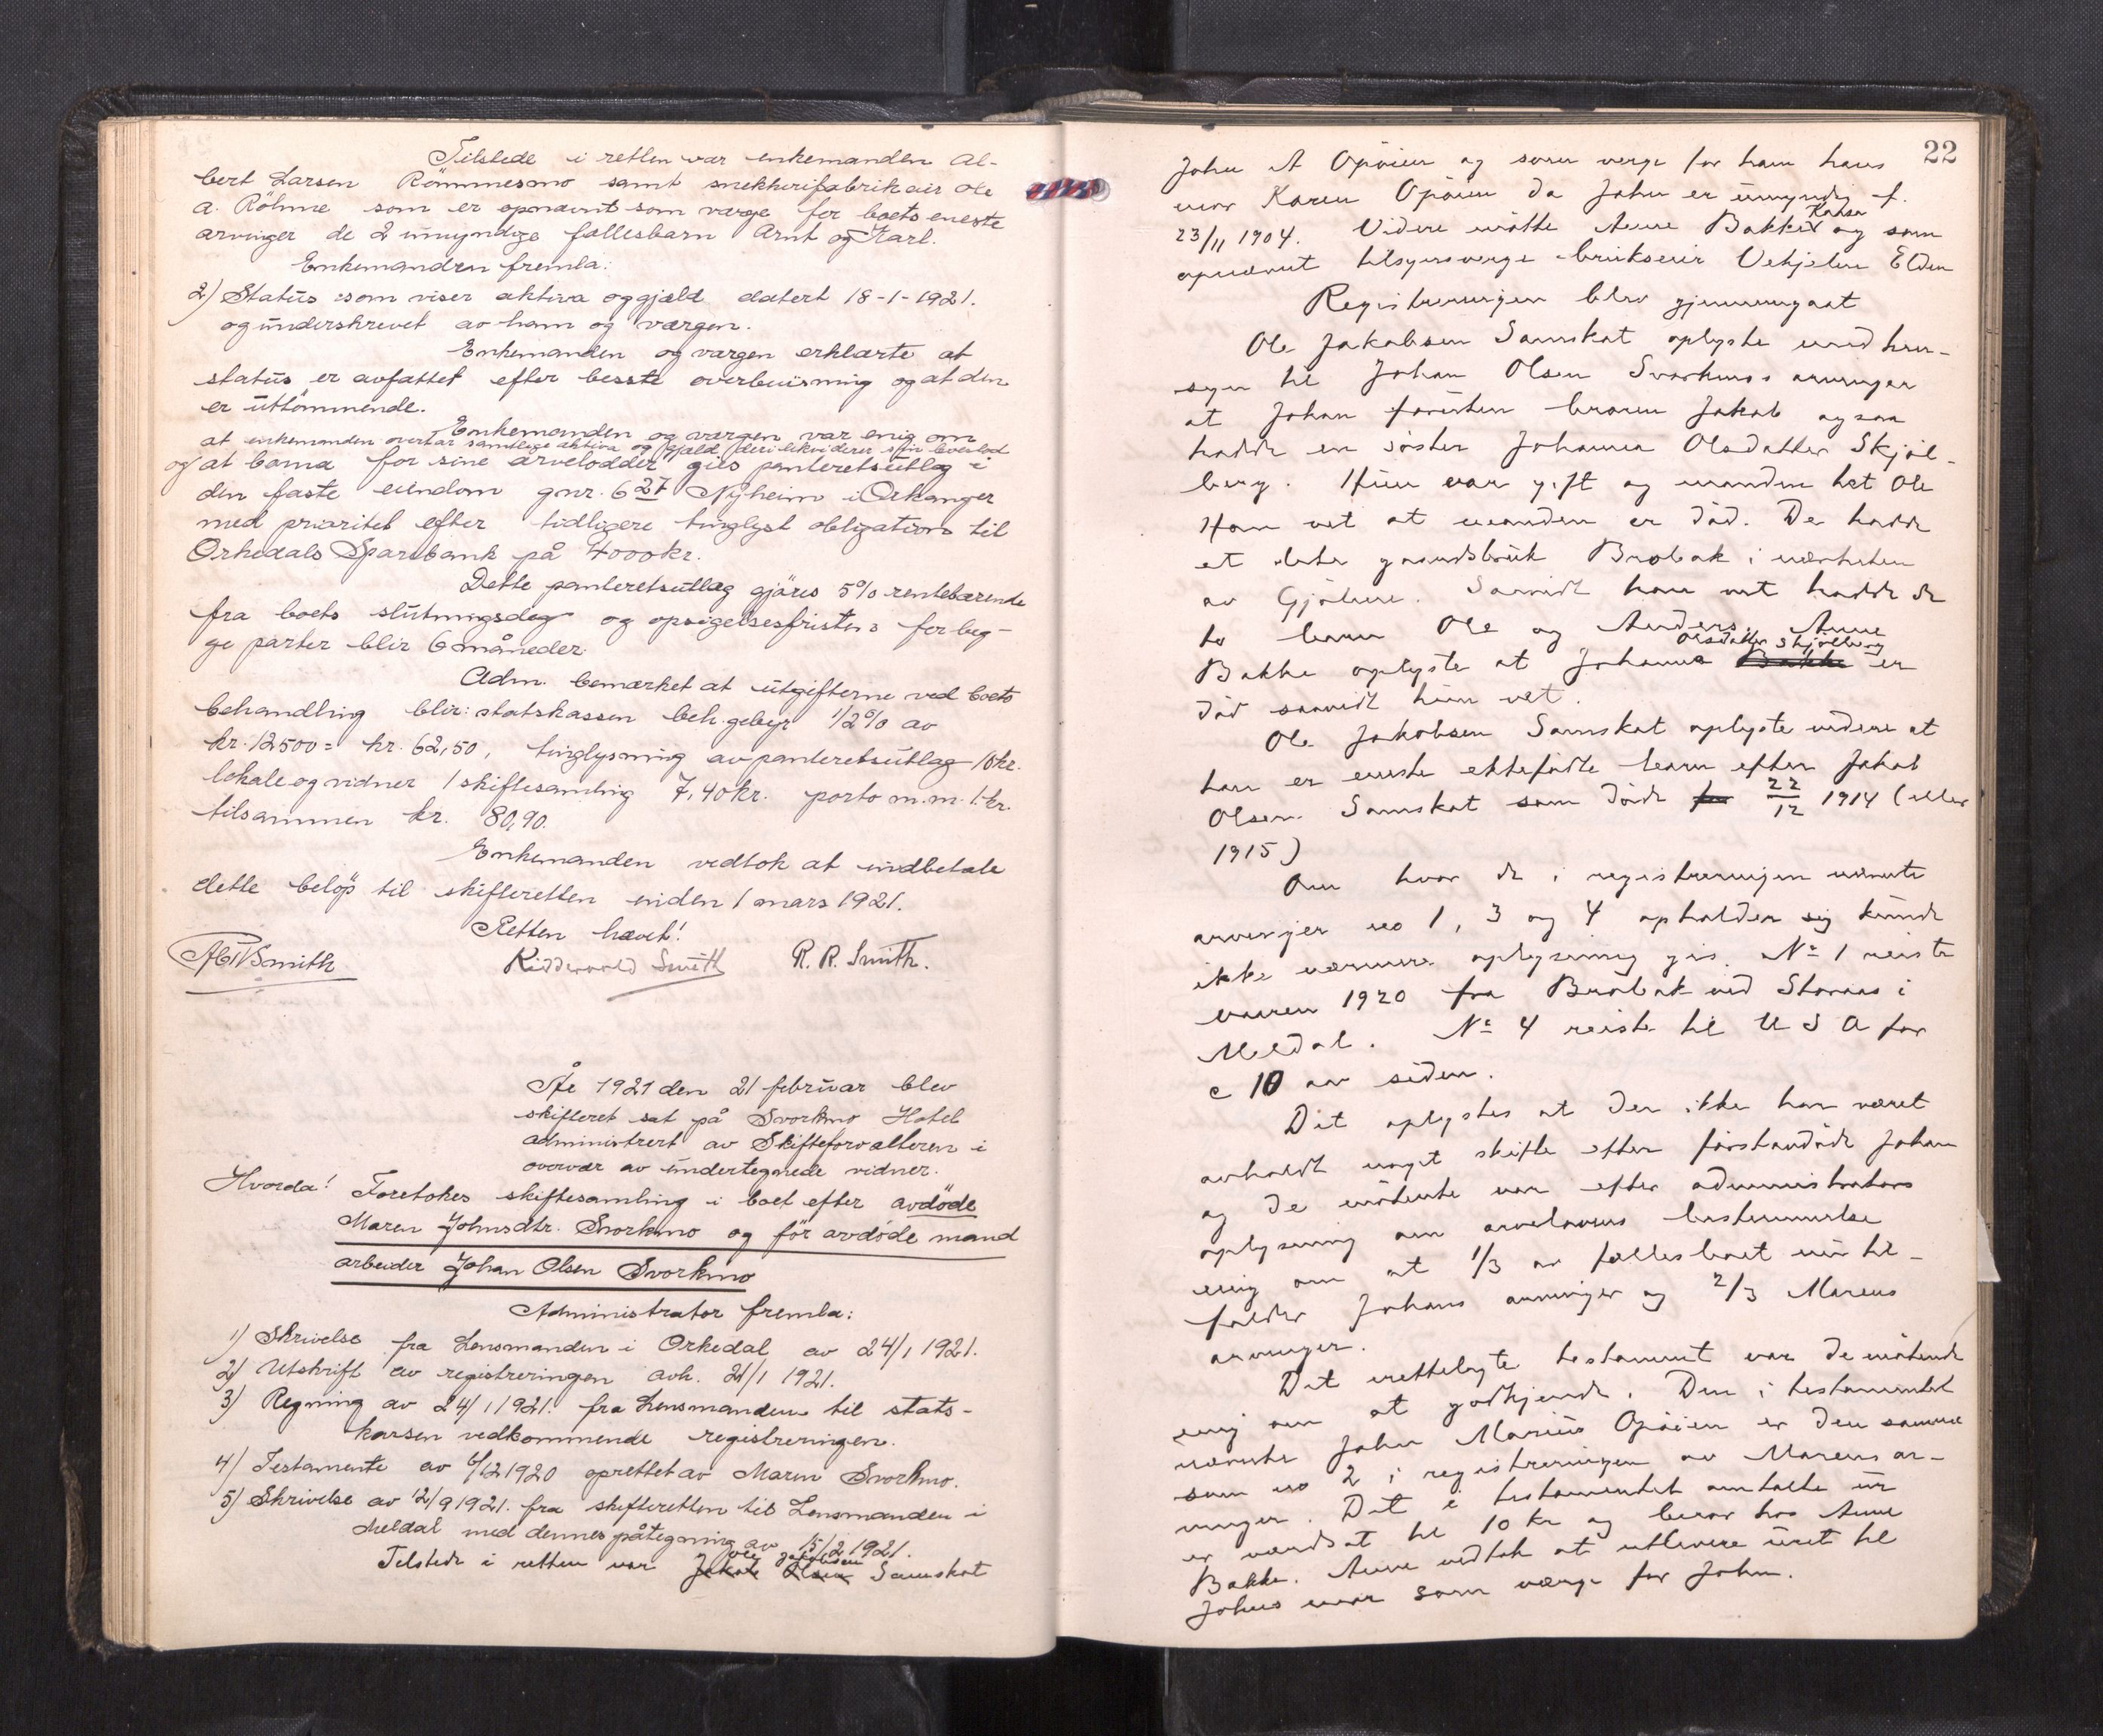 Tilstede i retten var enkemanden Al-
bert Larsen Römmesmo samt snekkerifabrikair Ole
A. Röhme som er opnævnt som værge for boets eneste
arvinger de 2 umyndige fællesbarn Arnt og Karl.
Enkemanden fremla:
2) Status som viser aktiva og gjæld datert 18-1-1921.
og underskrevet av ham og værgen.
Enkemanden og værgen erklærte at
status er avfattet efter besste overbevisning og at den
er uttömmende.
Enkemanden og værgen var enig om
at enkemanden overtar samtlige aktiva og gjæld
og at barna for sine arvelodder gis panteretsutlæg i
den faste eiendom gnr. 6 27 Nyheim i Orkanger
med prioritet efter tidligere tinglyst obligation til
Orkedals Sparebank på 4000 kr.
Dette panteretsutlæg gjöres 5% rentebærende
fra boets slutningsdag og opsigelsesfristen for beg-
ge parter blir 6 måneder.
Adm. bemærket at utgifterne ved boets
behandling blir: statskassen beh. gebyr 1/2% av
kr. 12500 = kr. 62,50, tinglysning av panteretsutlæg 10 kr.
lokale og vidner 1 skiftesamling 7,40 kr. porto m.m. 1 kr.
tilsammen kr. 80,90.
Enkemanden vedtok at indbetale
dette belöp til skifteretten inden 1 mars 1921.
Retten hævet!
Smith Riddervold Smith R. R. Smith.
År 1921 den 21 februar blev
skifteret sat på Svorkmo Hotel
administrert av Skifteforvalteren i
overvær av undertegnede vidner.
Hvorda! Foretokes skiftesamling i boet efter avdöde
Maren Johnsdtr. Svorkmo og för avdöde mand
arbeider Johan Olsen Svorkmo
Administrator fremla:
1) Skrivelse fra Lensmanden i Orkedal av 24/1 1921.
2) Utskrift av registreringen avh. 21/1 1921.
3) Regning av 24/1 1921. fra Lensmanden til stats-
kassen vedkommende registreringen.
4) Testamente av 6/12 1920 oprettet av Maren Svorkmo.
5) Skrivelse av 12/9 1921. fra skifteretten til Lensmanden i
Meldal med dennes påtegning av 15/2 1921.
Ole Jakobsen
Tilstede i retten var Jakob Olsen Samskot
22
John A Opöien og som verge for ham hans
mor Karen Opöien da John er umyndig f.
Kansa
23/11 1904. Videre mötte Anne Bakke og som
opnævnt tilsynsverge bruksier Vehjelm Elden
Registreringen blev gjennemgaat
Ole Jakobsen Samskot oplyste med hen-
syn til Johan Olsen Svorkmos arvinger
at Johan foruten broren Jakob ogsaa
hadde en söster Johanna Olsdatter Skjöl-
berg. Hun var gift og manden het Ole
Han vet at manden er död. De hadde
et lite gaardsbruk Brobak i nærheten
av Gjölme. Saavidt han vet hadde de
to barn Ole og Anders. Anne
Olsdatter Skjölberg
Bakke oplyste at Johanna Bakke er
död saavidt hun vet.
Ole Jakobsen Samskot oplyste videre at
han er eneste ektefödte barn efter Jakob
Olsen Samskot som döde 22/12 1914 (eller
1915)
Om hvor de i registreringen nævnte
arvinger no 1, 3 og 4 opholder sig kunde
ikke nærmere oplysning gis. No 1 reiste
vaaren 1920 fra Brobak ved Storaas i
Meldal. No 4 reiste til U S A for
c 10 aar siden.
Det oplystes at der ikke har været
avholdt noget skifte efter förstavdöde Johan
og de mötende var efter administrators
oplysning om arvelovens bestemmelse
enig om at 1/3 av fællesboet nu til-
falder Johans arvinger og 2/3 Marens
arvinger.
Det rettelagte testament var de mötende
enig om at godkjende. Den i testamentet
nævnte John Marius Opöien er den samme
som no 2 i registreringen av Marens ar-
vinger. Det i testamentet omtalte ur
er verdsat til 10 kr og beror hos Anne
Bakke. Anne vedtok at utlevere uret til
Johns mor som verge for John.